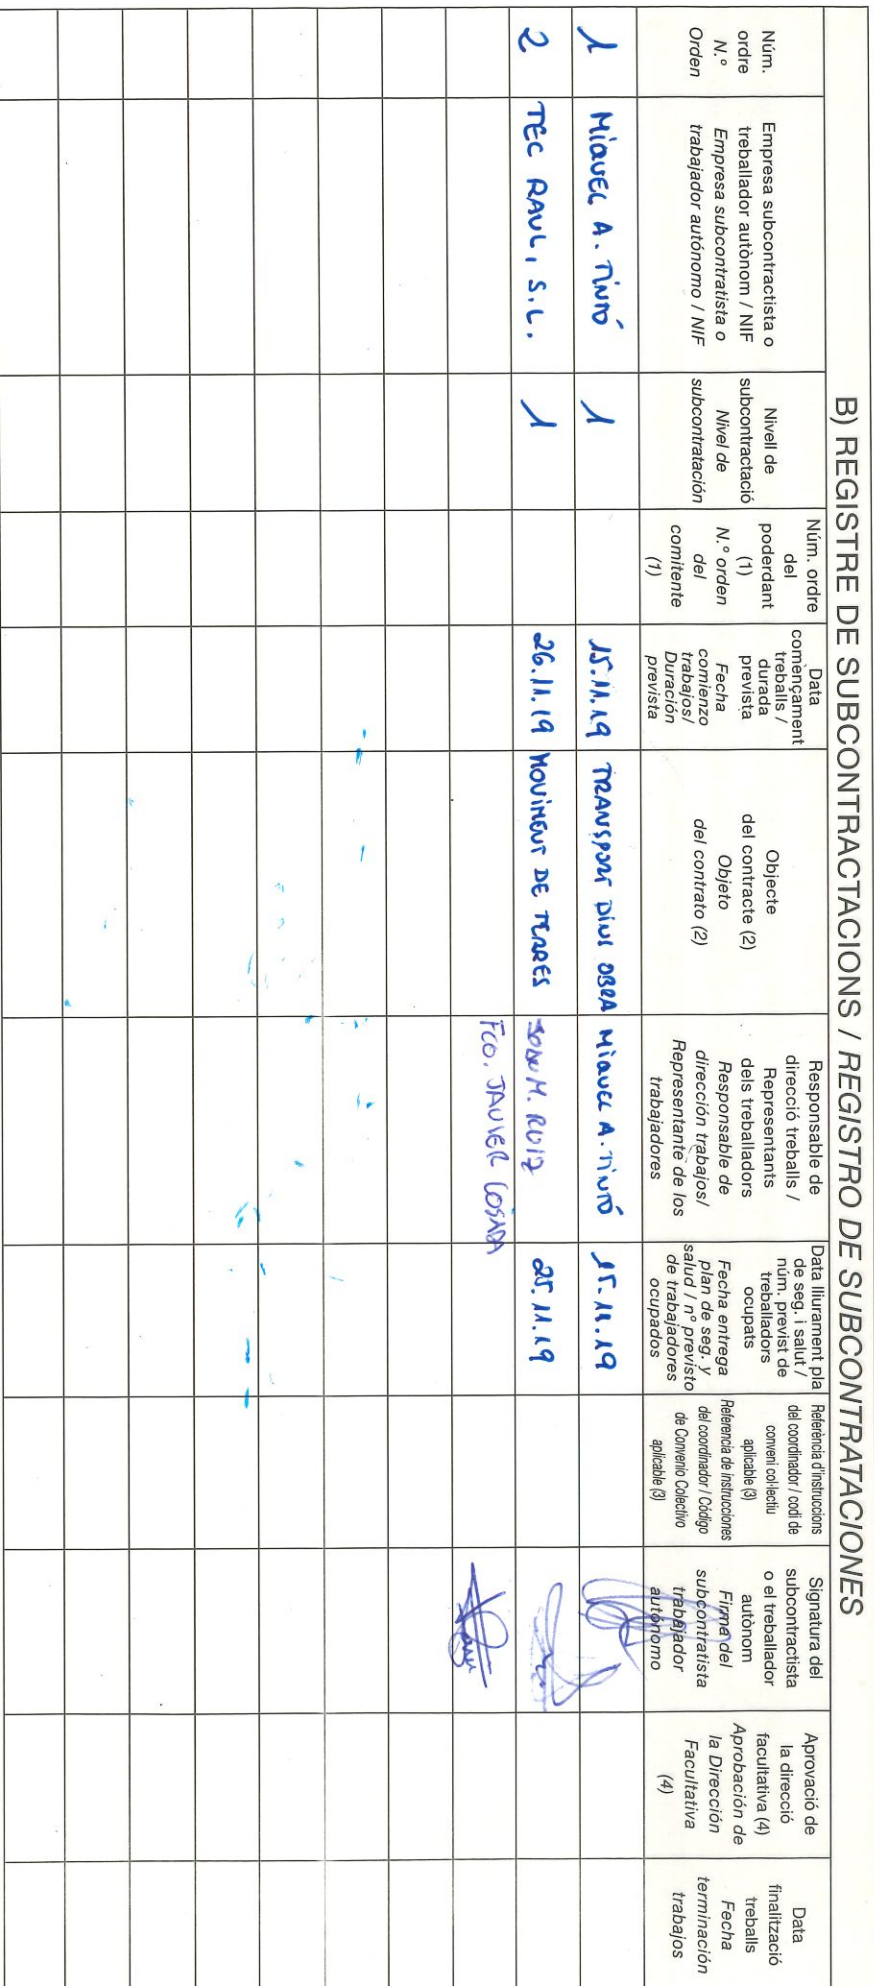 B) REGISTRE DE SUBCONTRACTACIONS / REGISTRO DE SUBCONTRATACIONES
Núm.
ordre
N.º
Orden
Empresa subcontractista o
treballador autònom / NIF
Empresa subcontratista o
trabajador autónomo / NIF
Nivell de
subcontractació
Nivel de
subcontratación
Núm. ordre
del
poderdant
(1)
N.º orden
del
comitente
(1)
Data
començament
treballs /
durada
prevista
Fecha
comienzo
trabajos/
Duración
prevista
Objecte
del contracte (2)
Objeto
del contrato (2)
Responsable de
direcció treballs /
Representants
dels treballadors
Responsable de
dirección trabajos/
Representante de los
trabajadores
Data lliurament pla
de seg. i salut /
núm. previst de
treballadors
ocupats
Fecha entrega
plan de seg. y
salud / nº previsto
de trabajadores
ocupados
Referència d'instruccions
del coordinador / codi de
conveni col·lectiu
aplicable (3)
Referencia de instrucciones
del coordinador / Código
de Convenio Colectivo
aplicable (3)
Signatura del
subcontractista
o el treballador
autònom
Firma del
subcontratista
trabajador
autónomo
Aprovació de
la direcció
facultativa (4)
Aprobación de
la Dirección
Facultativa
(4)
Data
finalització
treballs
Fecha
terminación
trabajos
1 MIQUEL A. TINTÓ 1 15.11.19 TRANSPORT DINS OBRA MIQUEL A. TINTÓ 15.11.19
2 TEC RAUL, S.L. 1 26.11.19 MOVIMENT DE TERRES M. RUIZ 25.11.19
FCO. JAVIER LOSADA